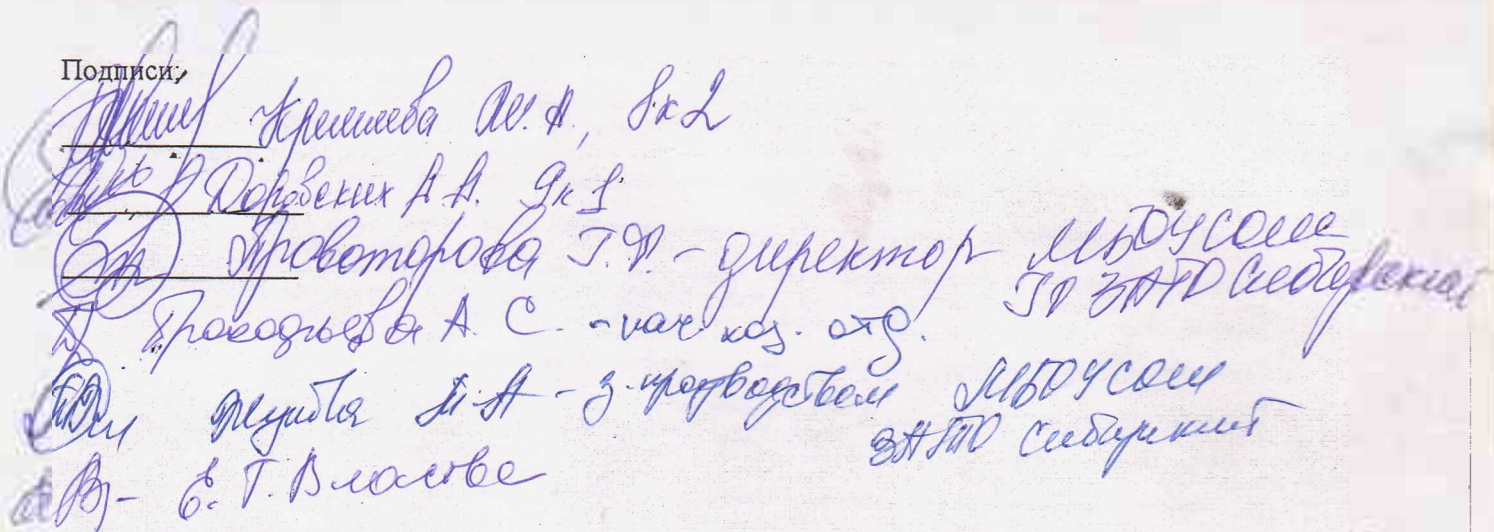 Подписи:
Кремлева М. А., 8к2
Доровских А А. 9к1
Провоторова Г.Ф. - директор МБОУ СОШ
ГР ЗАТО Сибирский
Прокофьева А. С. - нач. хоз. отд.
А - з. производством МБОУ СОШ
ЗАТО Сибирский
Е. Г. Власова